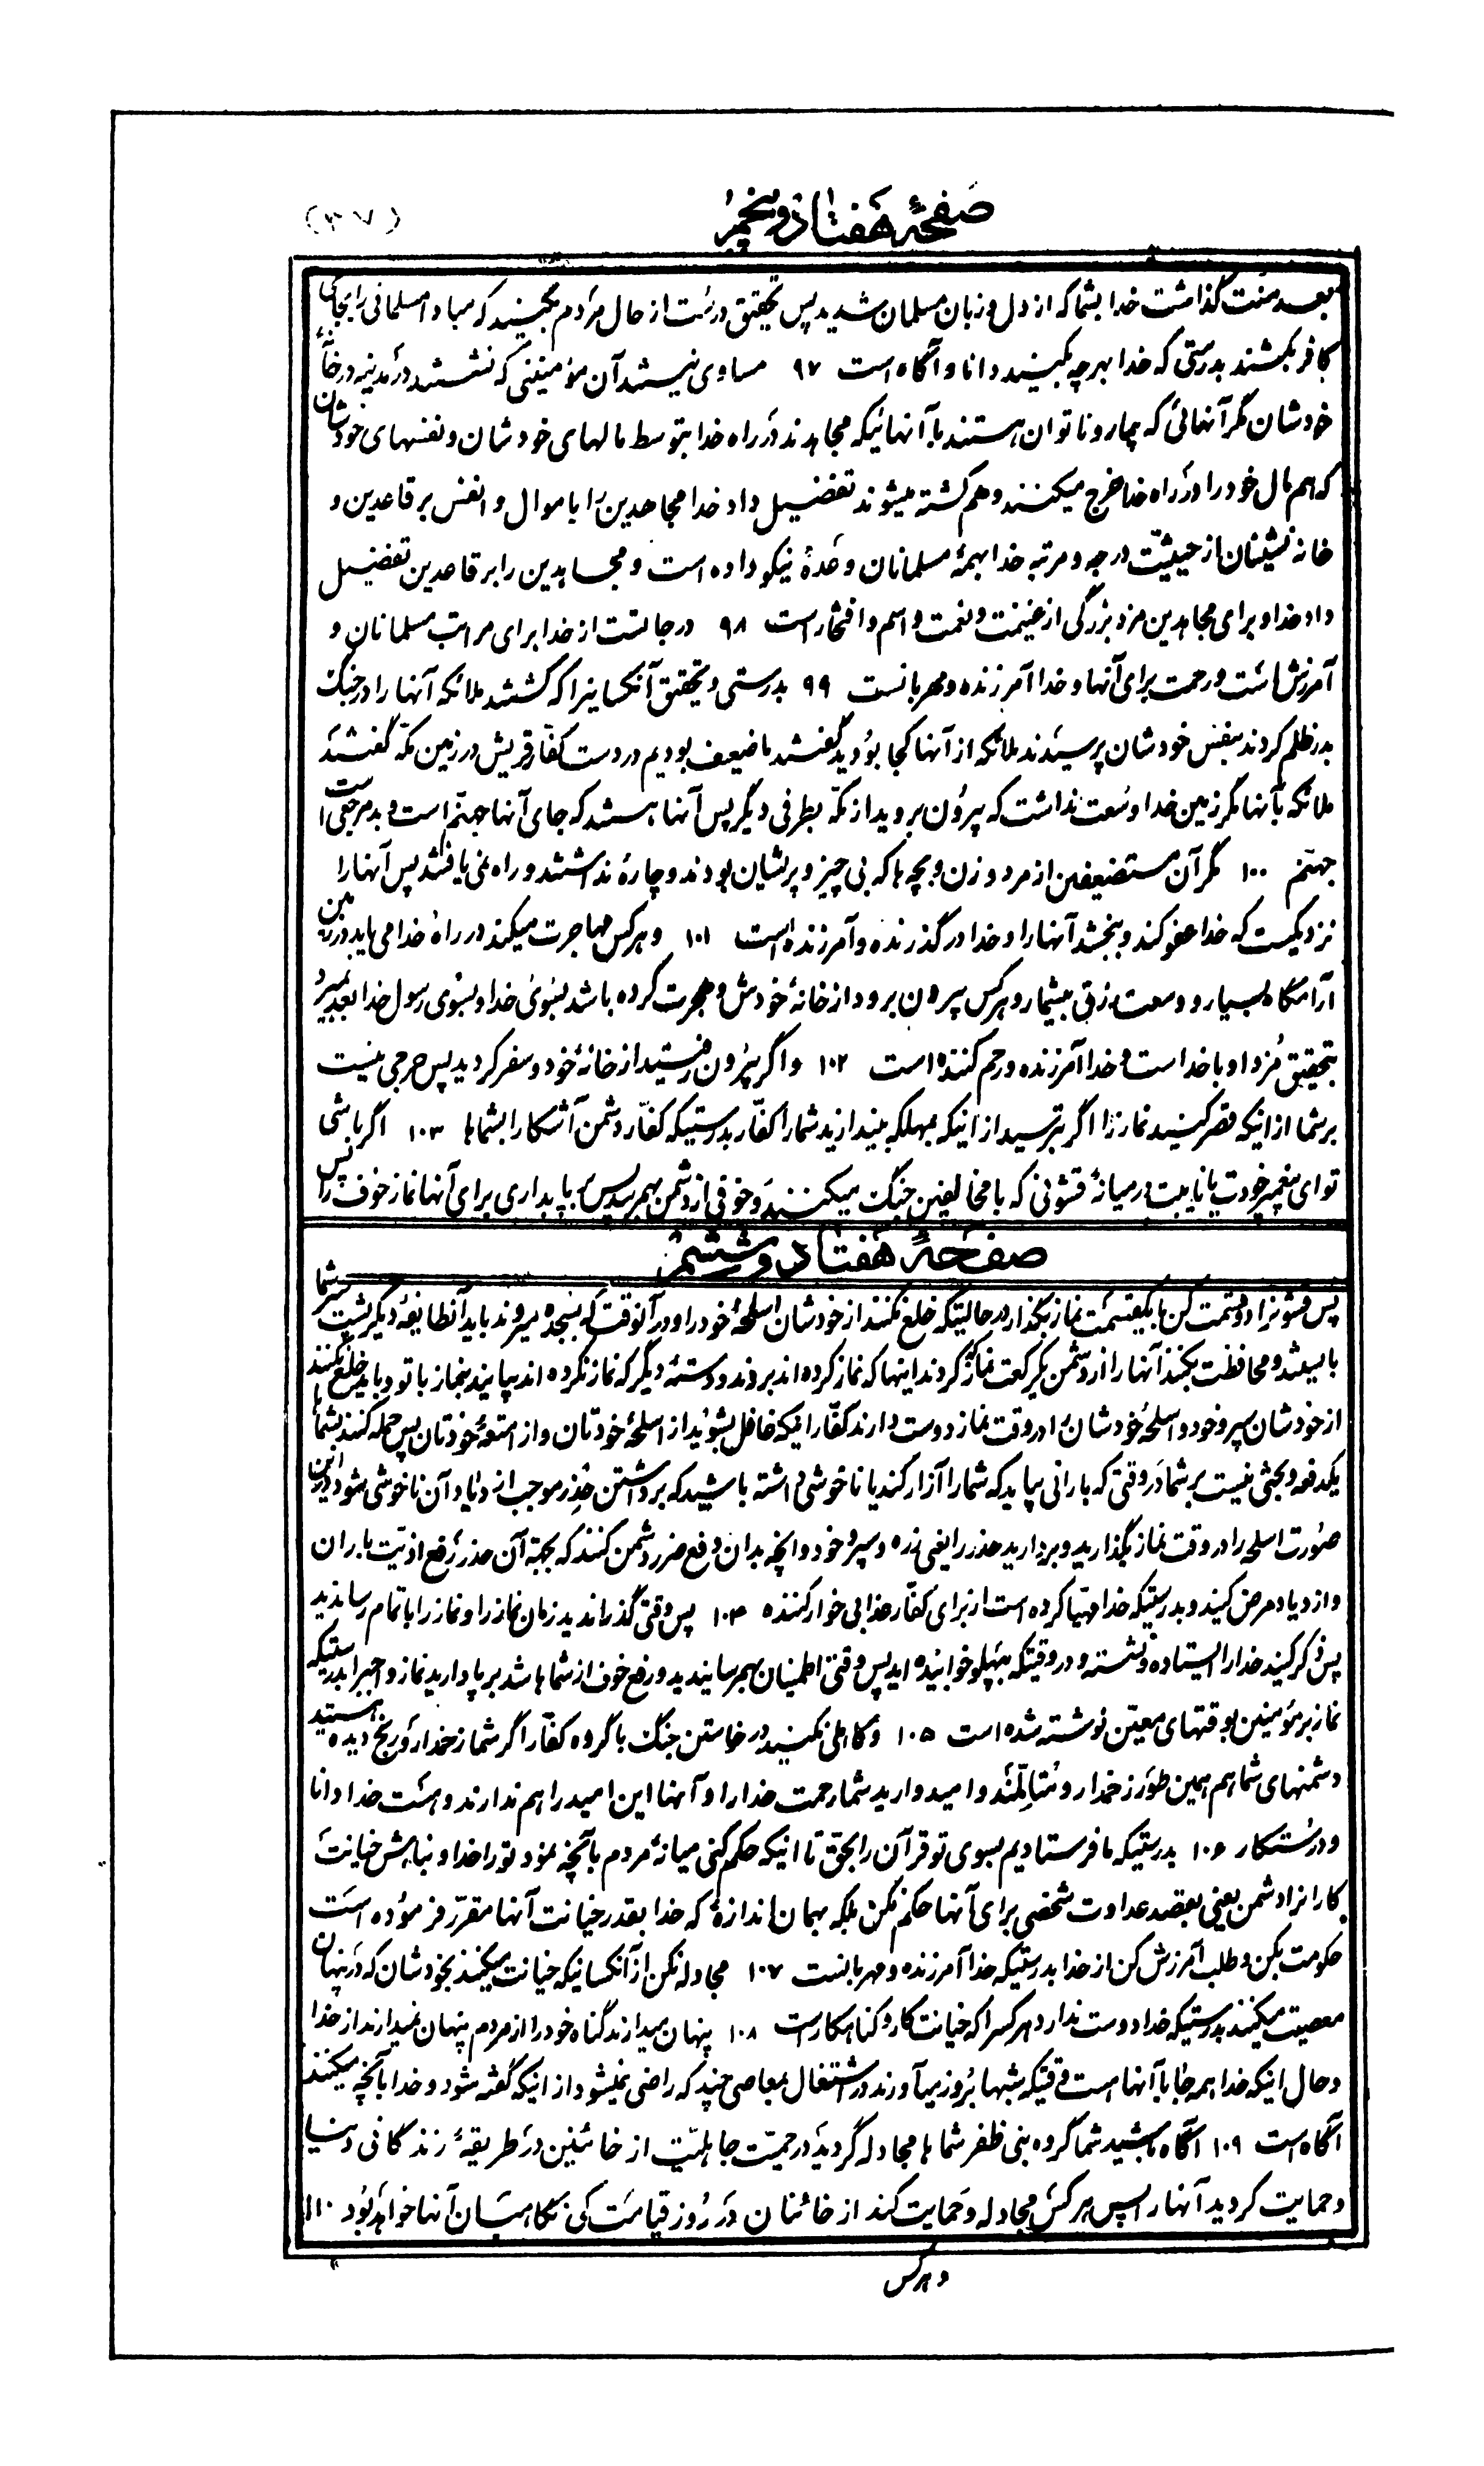 (۳۷)
صفحهٔ هفتاد و پنجم
بعد منت گذاشت خدا بشما که از دل و زبان مسلمان شدید پس تحقیق درست از حال مردم بکنید که مبادا مسلمانی را بجای
کافر بکشند بدرستی که خدا بهر چه بکنید دانا و آگاه است ۹۷ مساوی نیستند آن مؤمنینی که نشستند در مدینه در خانهٔ
خودشان مگر آنهائی که بیمار و ناتوان هستند با آنهائیکه مجاهدند در راه خدا بتوسط مالهای خودشان و نفسهای خودشان
که هم مال خود را در راه خدا خرج میکنند و هم کشته میشوند تفضیل داد خدا مجاهدین را باموال و انفس بر قاعدین و
خانه نشینان از حیثیّت درجه و مرتبه خدا بهمهٔ مسلمانان وعدهٔ نیکو داده است و مجاهدین را بر قاعدین تفضیل
داد خدا و برای مجاهدین مزد بزرگی از غنیمت و نعمت و اسم و افتخار است ۹۸ درجاتست از خدا برای مراتب مسلمانان و
آمرزش است و رحمت برای آنها و خدا آمرزنده و مهربانست ۹۹ بدرستی و تحقیق آنکسانیرا که کشتند ملائکه آنها را در جنگ
بدر ظلم کردند بنفس خودشان پرسیدند ملائکه از آنها کجا بودید گفتند ما ضعیف بودیم در دست کفّار قریش در زمین مکّه گفتند
ملائکه بآنها مگر زمین خدا وسعت نداشت که بیرون بروید از مکّه بطرفی دیگر پس آنها هستند که جای آنها جهنّم است و بد مرجعی است
جهنّم ۱۰۰ مگر آن مستضعفین از مرد و زن و بچه ها که بی چیز و پریشان بودند و چارهٔ نداشتند و راه نمی یافتند پس آنها را
نزدیکست که خدا عفو کند و ببخشد آنها را و خدا در گذرنده و آمرزنده است ۱۰۱ و هر کس مهاجرت میکند در راه خدا می یابد در زمین
آرامگاه بسیار و وسعت رزق بیشمار و هر کس بیرون برود از خانهٔ خودش و هجرت کرده باشد بسوی خدا و بسوی رسول خدا بعد بمیرد
بتحقیق مزد او با خداست و خدا آمرزنده و رحم کننده است ۱۰۲ و اگر بیرون رفتید از خانهٔ خود و سفر کردید پس حرجی نیست
بر شما از اینکه قصر کنید نماز را اگر بترسید از اینکه بمهلکه بیندازید شما را کفّار بدرستیکه کفّار دشمن آشکارا بشماها ۱۰۳ اگر باشی
تو ای پیغمبر خودت یا نایبت در میانهٔ قشونی که با مخالفین جنگ میکنند و خوفی از دشمن بهم برسد پس بپا بداری برای آنها نماز خوف را پس
صفحهٔ هفتاد و ششم
پس قشونرا دو قسمت کن با یکقسمت نماز بگذار در حالتیکه خلع نکنند از خودشان اسلحهٔ خود را و در آنوقت که بسجده میروند باید آنطایفهٔ دیگر پشت سر شما
بایستند و محافظت بکنند آنها را از دشمن یکرکعت نماز که کردند اینها که نماز کرده اند بروند و دستهٔ دیگر که نماز نکرده اند بیایند بنماز با تو و باید خلع نکنند
از خودشان سپر و خود و اسلحهٔ خودشان را در وقت نماز دوست دارند کفّار اینکه غافل بشوید از اسلحهٔ خودتان و از امتعهٔ خودتان پس حمله کنند بشما
یکدفعه و بحثی نیست بر شما در وقتی که بارانی بیاید که شما را آزار کند یا ناخوشی داشته باشید که برداشتن حذر موجب ازدیاد آن ناخوشی شود در این
صورت اسلحه را در وقت نماز بگذارید و بردارید حذر را یعنی زره و سپر و خود و آنچه بدان دفع ضرر دشمن کنند که بجهة آن حذر رفع اذیّت باران
و ازدیاد مرض کنید و بدرستیکه خدا مهیّا کرده است از برای کفّار عذابی خوار کننده ۱۰۴ پس وقتی گذراندید زمان نماز را و نماز را باتمام رساندید
پس ذکر کنید خدا را ایستاده و نشسته و در وقتیکه بپهلو خوابیده اید پس وقتی اطمینان بهم رسانیدید و رفع خوف از شماها شد بر پا دارید نماز واجبرا بدرستیکه
نماز بر مؤمنین بوقتهای معیّن نوشته شده است ۱۰۵ و کاهلی نکنید در خواستن جنگ با گروه کفّار اگر شما زخمدار و رنج دیده هستید
دشمنهای شما هم همین طور زخمدار و متالّمند و امیدوارید شما رحمت خدا را و آنها این امید را هم ندارند و هست خدا دانا
و درستکار ۱۰۶ بدرستیکه ما فرستادیم بسوی تو قرآن را بحق تا اینکه حکم کنی میانهٔ مردم بآنچه نمود تو را خدا و نباش خیانت
کارانرا دشمن یعنی بقصد عداوت شخصی برای آنها حکم نکن بلکه بهمان اندازهٔ که خدا بقدر خیانت آنها مقرّر فرموده است
حکومت بکن و طلب آمرزش کن از خدا بدرستیکه خدا آمرزنده و مهربانست ۱۰۷ مجادله نکن از آنکسانیکه خیانت میکنند بخودشان که در پنهان
معصیت میکنند بدرستیکه خدا دوست ندارد هر کسرا که خیانت کار و گناهکار است ۱۰۸ پنهان میدارند گناه خود را از مردم پنهان نمیدارند از خدا
و حال اینکه خدا همه جا با آنها است وقتیکه شبها بروز میآورند در اشتغال بمعاصی چند که راضی نمیشود از اینکه گفته شود و خدا بآنچه میکنند
آگاه است ۱۰۹ آگاه باشید شما گروه بنی ظفر شماها مجادله گردید در حمیّت جاهلیّت از خائنین در طریقهٔ زندگانی دنیا
و حمایت کردید آنها را پس هر کس مجادله و حمایت کند از خائنان در روز قیامت کی نگاهبان آنها خواهد بود ۱۱۰
و هر کس